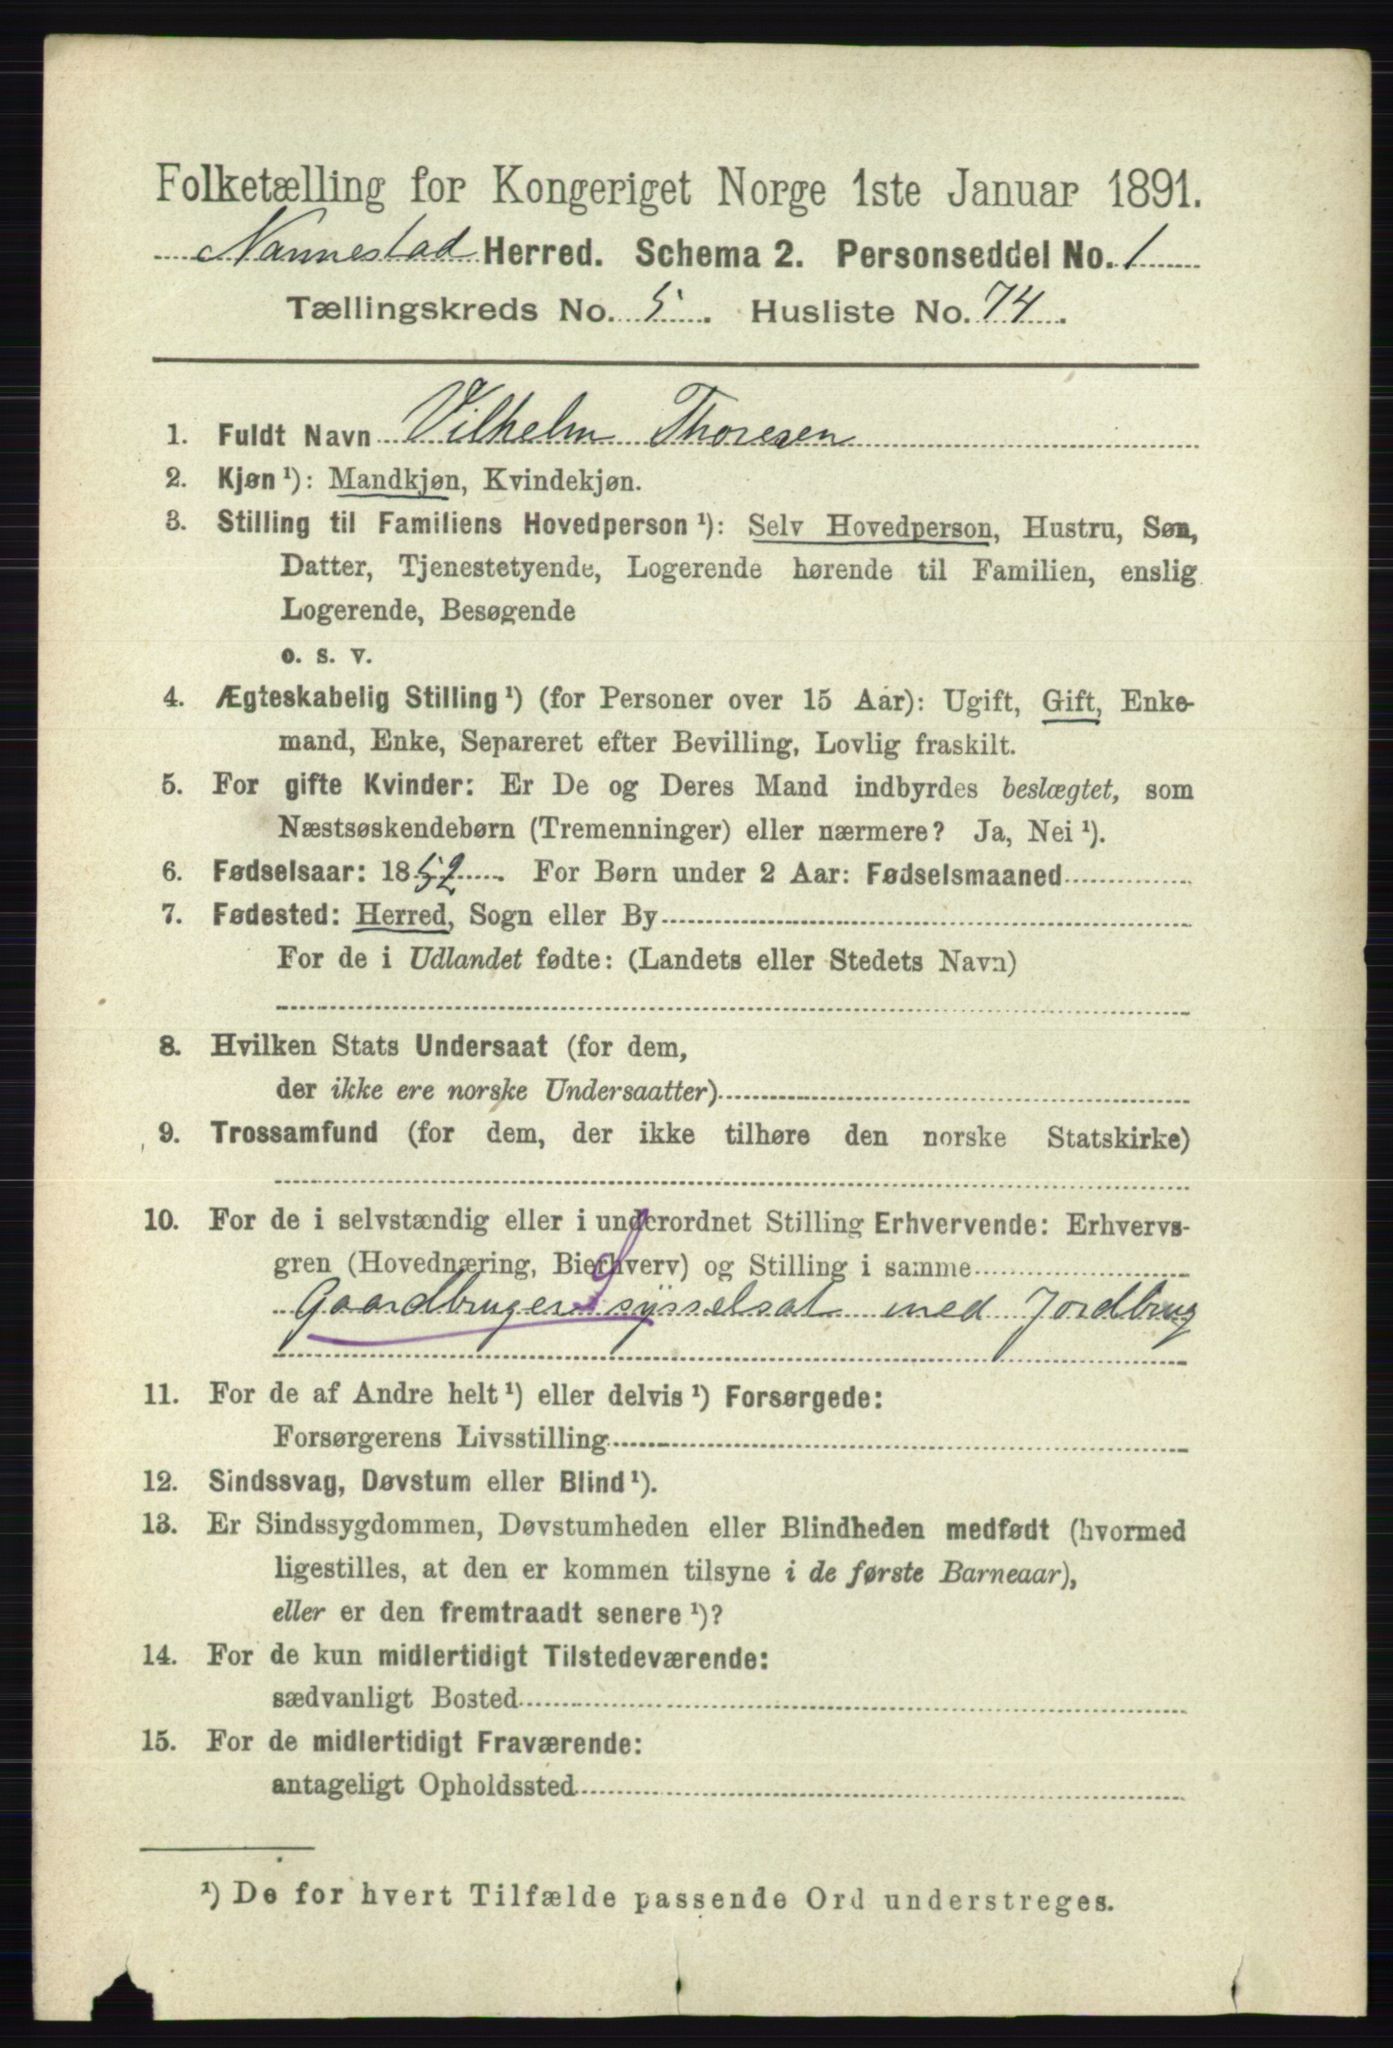 Folketælling for Kongeriget Norge 1ste Januar 1891.
Nannestad Herred. Schema 2. Personseddel No. 1
Tællingskreds No. 5. Husliste No. 74.
1. Fuldt Navn Vilhelm Thoresen
2. Kjøn ¹): Mandkjøn, Kvindekjøn.
3. Stilling til Familiens Hovedperson ¹): Selv Hovedperson, Hustru, Søn,
Datter, Tjenestetyende, Logerende hørende til Familien, enslig
Logerende, Besøgende
o. s. v.
4. Ægteskabelig Stilling ¹) (for Personer over 15 Aar): Ugift, Gift, Enke-
mand, Enke, Separeret efter Bevilling, Lovlig fraskilt.
5. For gifte Kvinder: Er De og Deres Mand indbyrdes beslægtet, som
Næstsøskendebørn (Tremenninger) eller nærmere? Ja, Nei ¹).
6. Fødselsaar: 1852. For Børn under 2 Aar: Fødselsmaaned
7. Fødested: Herred, Sogn eller By
For de i Udlandet fødte: (Landets eller Stedets Navn)
8. Hvilken Stats Undersaat (for dem,
der ikke ere norske Undersaatter)
9. Trossamfund (for dem, der ikke tilhøre den norske Statskirke)
10. For de i selvstændig eller i underordnet Stilling Erhvervende: Erhvervs-
gren (Hovednæring, Bierhverv) og Stilling i samme
Gaardbruger sysselsat med Jordbrug
11. For de af Andre helt ¹) eller delvis ¹) Forsørgede:
Forsørgerens Livsstilling
12. Sindssvag, Døvstum eller Blind ¹).
13. Er Sindssygdommen, Døvstumheden eller Blindheden medfødt (hvormed
ligestilles, at den er kommen tilsyne i de første Barneaar),
eller er den fremtraadt senere ¹)?
14. For de kun midlertidigt Tilstedeværende:
sædvanligt Bosted
15. For de midlertidigt Fraværende:
antageligt Opholdssted
¹) De for hvert Tilfælde passende Ord understreges.